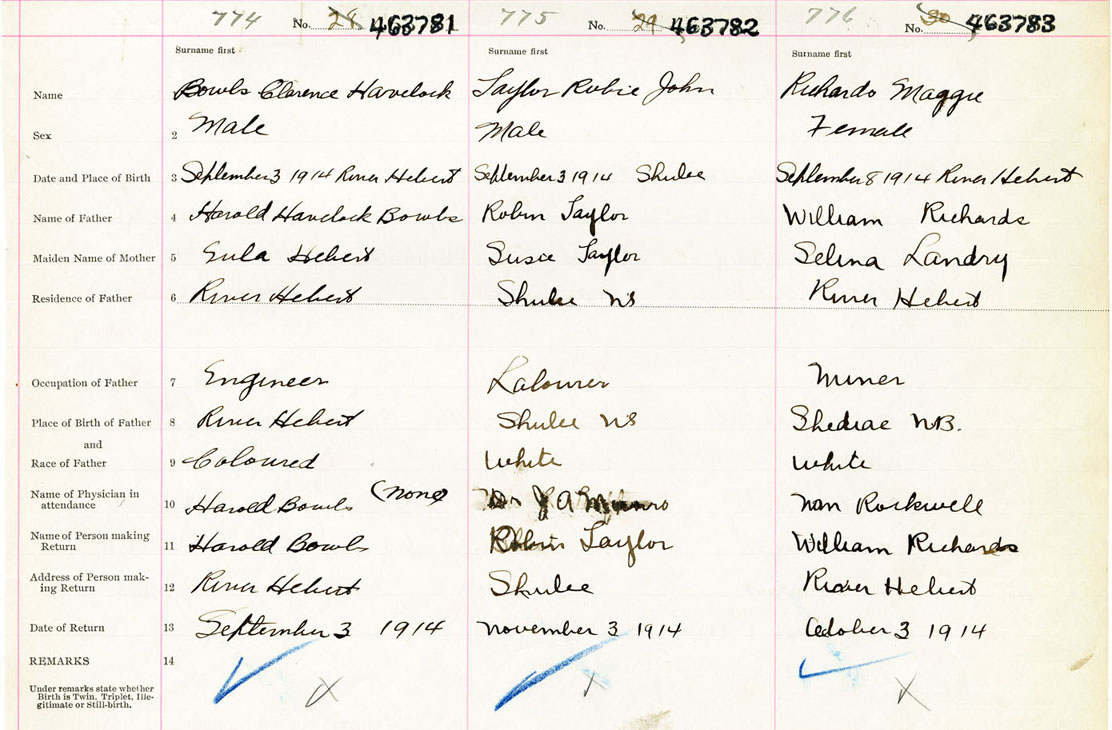 774 No. 28 463781 775 No. 29 463782 776 No. 30 463783
Surname first Surname first Surname first
Name Bowlbs Clarence Havelock Taylor Robie John Richards Maggie
Sex 2 Male Male Female
Date and Place of Birth 3 September 3 1914 River Hebert September 3 1914 Shulee September 8 1914 River Hebert
Name of Father 4 Harold Havelock Bowlbs Robin Taylor William Richards
Maiden Name of Mother 5 Eula Hebert Susie Taylor Selina Landry
Residence of Father 6 River Hebert Shulee NS River Hebert
Occupation of Father 7 Engineer Labourer Miner
Place of Birth of Father 8 River Hebert Shulee NS Shediac N.B.
and
Race of Father 9 Coloured White White
Name of Physician in
attendance 10 Harold Bowlbs (None) Dr J A Munro Rockwell
Name of Person making
Return 11 Harold Bowlbs Robin Taylor William Richards
Address of Person mak-
ing Return 12 River Hebert Shulee River Hebert
Date of Return 13 September 3 1914 November 3 1914 October 3 1914
REMARKS 14
Under remarks state whether
Birth is Twin, Triplet, Ille-
gitimate or Still-birth. X X X